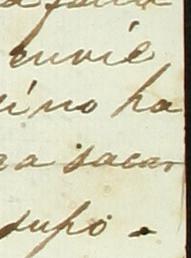 envie
no ha
a sacar
supo.